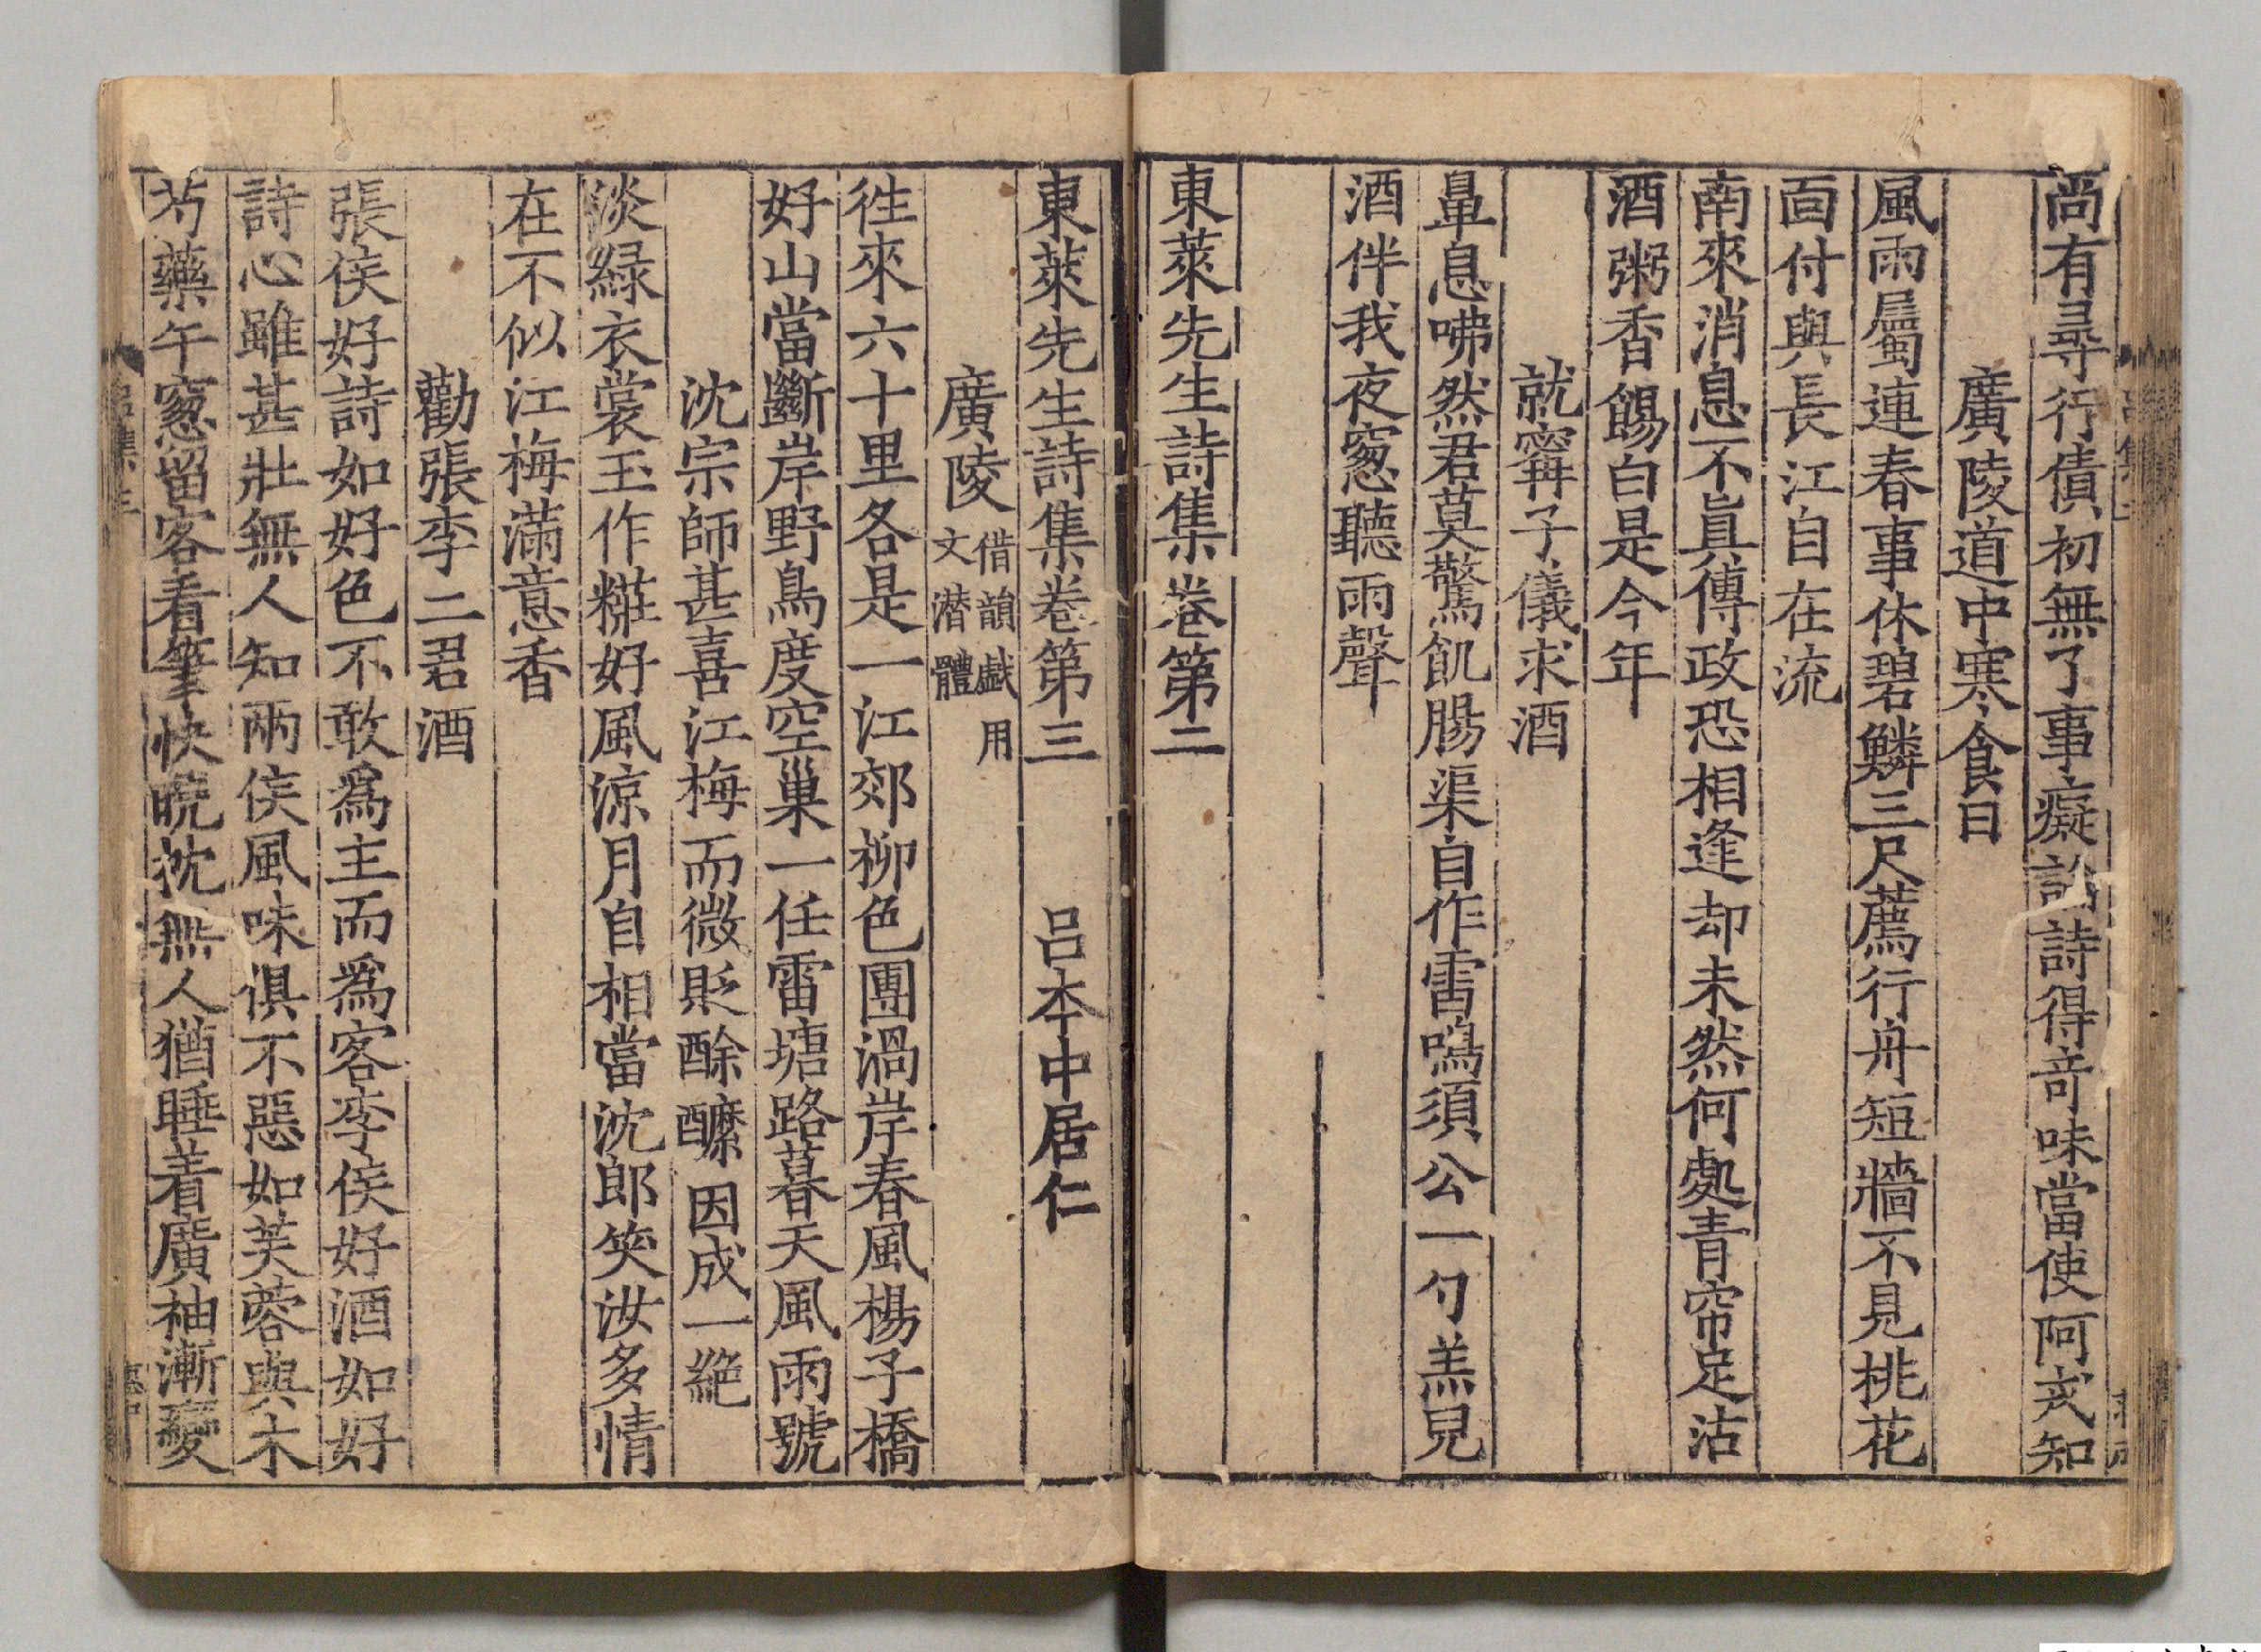 尚有尋行債初無了事癡 詩得奇味當使阿戎知
廣陵道中寒食日
風雨屬連春事休碧鱗三尺薦行舟短牆不見桃花
面付與長江自在流
南來消息不真傳政恐相逢却未然何處青帘足沽
酒粥香餳白是今年
就寗子儀求酒
鼻息咈然君莫驚飢腸渠自作雷鳴須公一勺羔兒
酒伴我夜窻聽雨聲
東萊先生詩集卷第二
東萊先生詩集卷第三 呂本中居仁
廣陵 借韻戱用文潜體
徃來六十里各是一江郊柳色團渦岸春風楊子橋
好山當斷岸野鳥度空巢一任雷塘路暮天風雨號
沈宗師甚喜江梅而微貶酴醿因成一絶
淡緑衣裳玉作糚好風涼月自相當沈郎笑汝多情
在不似江梅滿意香
勸張李二君酒
張侯好詩如好色不敢爲主而爲客李侯好酒如好
詩心雖甚壯無人知兩侯風味俱不惡如芙蓉與木
芍藥午窻留客看筆快晚枕無人猶睡着廣袖漸變